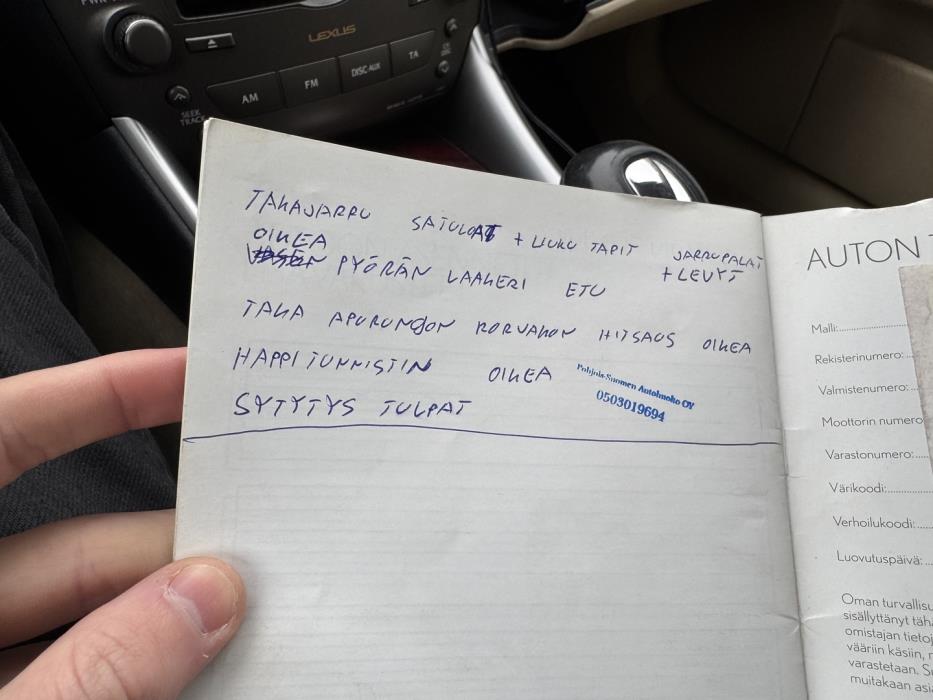 LEXUS
AM
FM
DISC·AUX
TA
SEEK
TRACK
TAKAJARRU SATULAT + LIUKU TAPIT JARRUPALAT
+ LEVYT
OIKEA
PYÖRÄN LAAKERI ETU
TAKA APURUNGON KORVAKON HITSAUS OIKEA
HAPPITUNNISTIN OIKEA
SYTYTYS TULPAT
Pohjois-Suomen Autohuolto OY
0503019694
AUTON
Malli:
Rekisterinumero:
Valmistenumero:
Moottorin numero
Varastonumero:
Värikoodi:
Verhoilukoodi:
Luovutuspäivä:
Oman turvallisu
sisällyttänyt täh
omistajan tietoj
vääriin käsiin,
varastetaan. Su
muitakaan asi